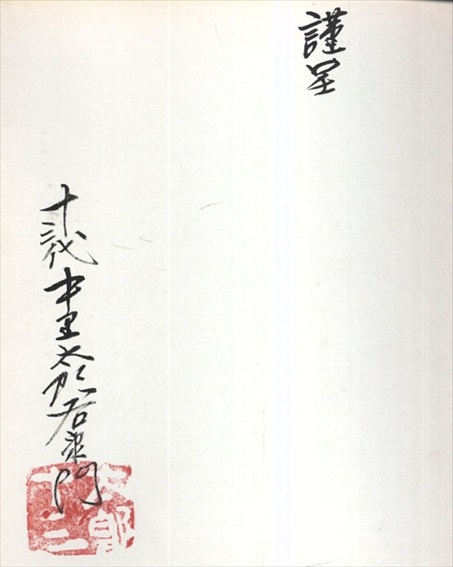 謹呈
十三代 中里太郎右衛門